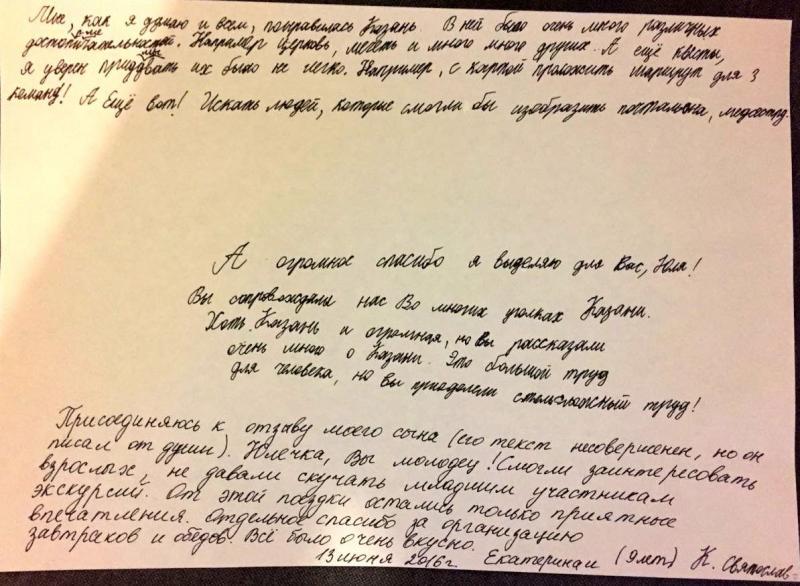 Мне, как я думаю и всем, понравилась Казань. В ней было очень много различных
достопримечательностей. Например церковь, мечеть и много много других. А ещё квесты,
я уверен придумывать их было не легко. Например, с картой проложить маршрут для 3
команд! А Ещё вот! Искать людей, которые смогли бы изобразить почтальона, медсестру.
А огромное спасибо я выделяю для Вас, Юля!
Вы сопровождали нас Во многих уголках Казани.
Хоть Казань и огромная, но Вы рассказали
очень много о Казани. Это большой труд
для человека, но вы преодолели столь сложный труд!
Присоединяюсь к отзыву моего сына (его текст несовершенен, но он
писал от души). Юлечка, Вы молодец! Смогли заинтересовать
взрослых, не давали скучать младшим участникам
экскурсий. От этой поездки остались только приятные
впечатления. Отдельное спасибо за организацию
завтраков и обедов. Всё было очень вкусно.
13 июня 2016г. Екатерина и (9 лет) К. Святослав